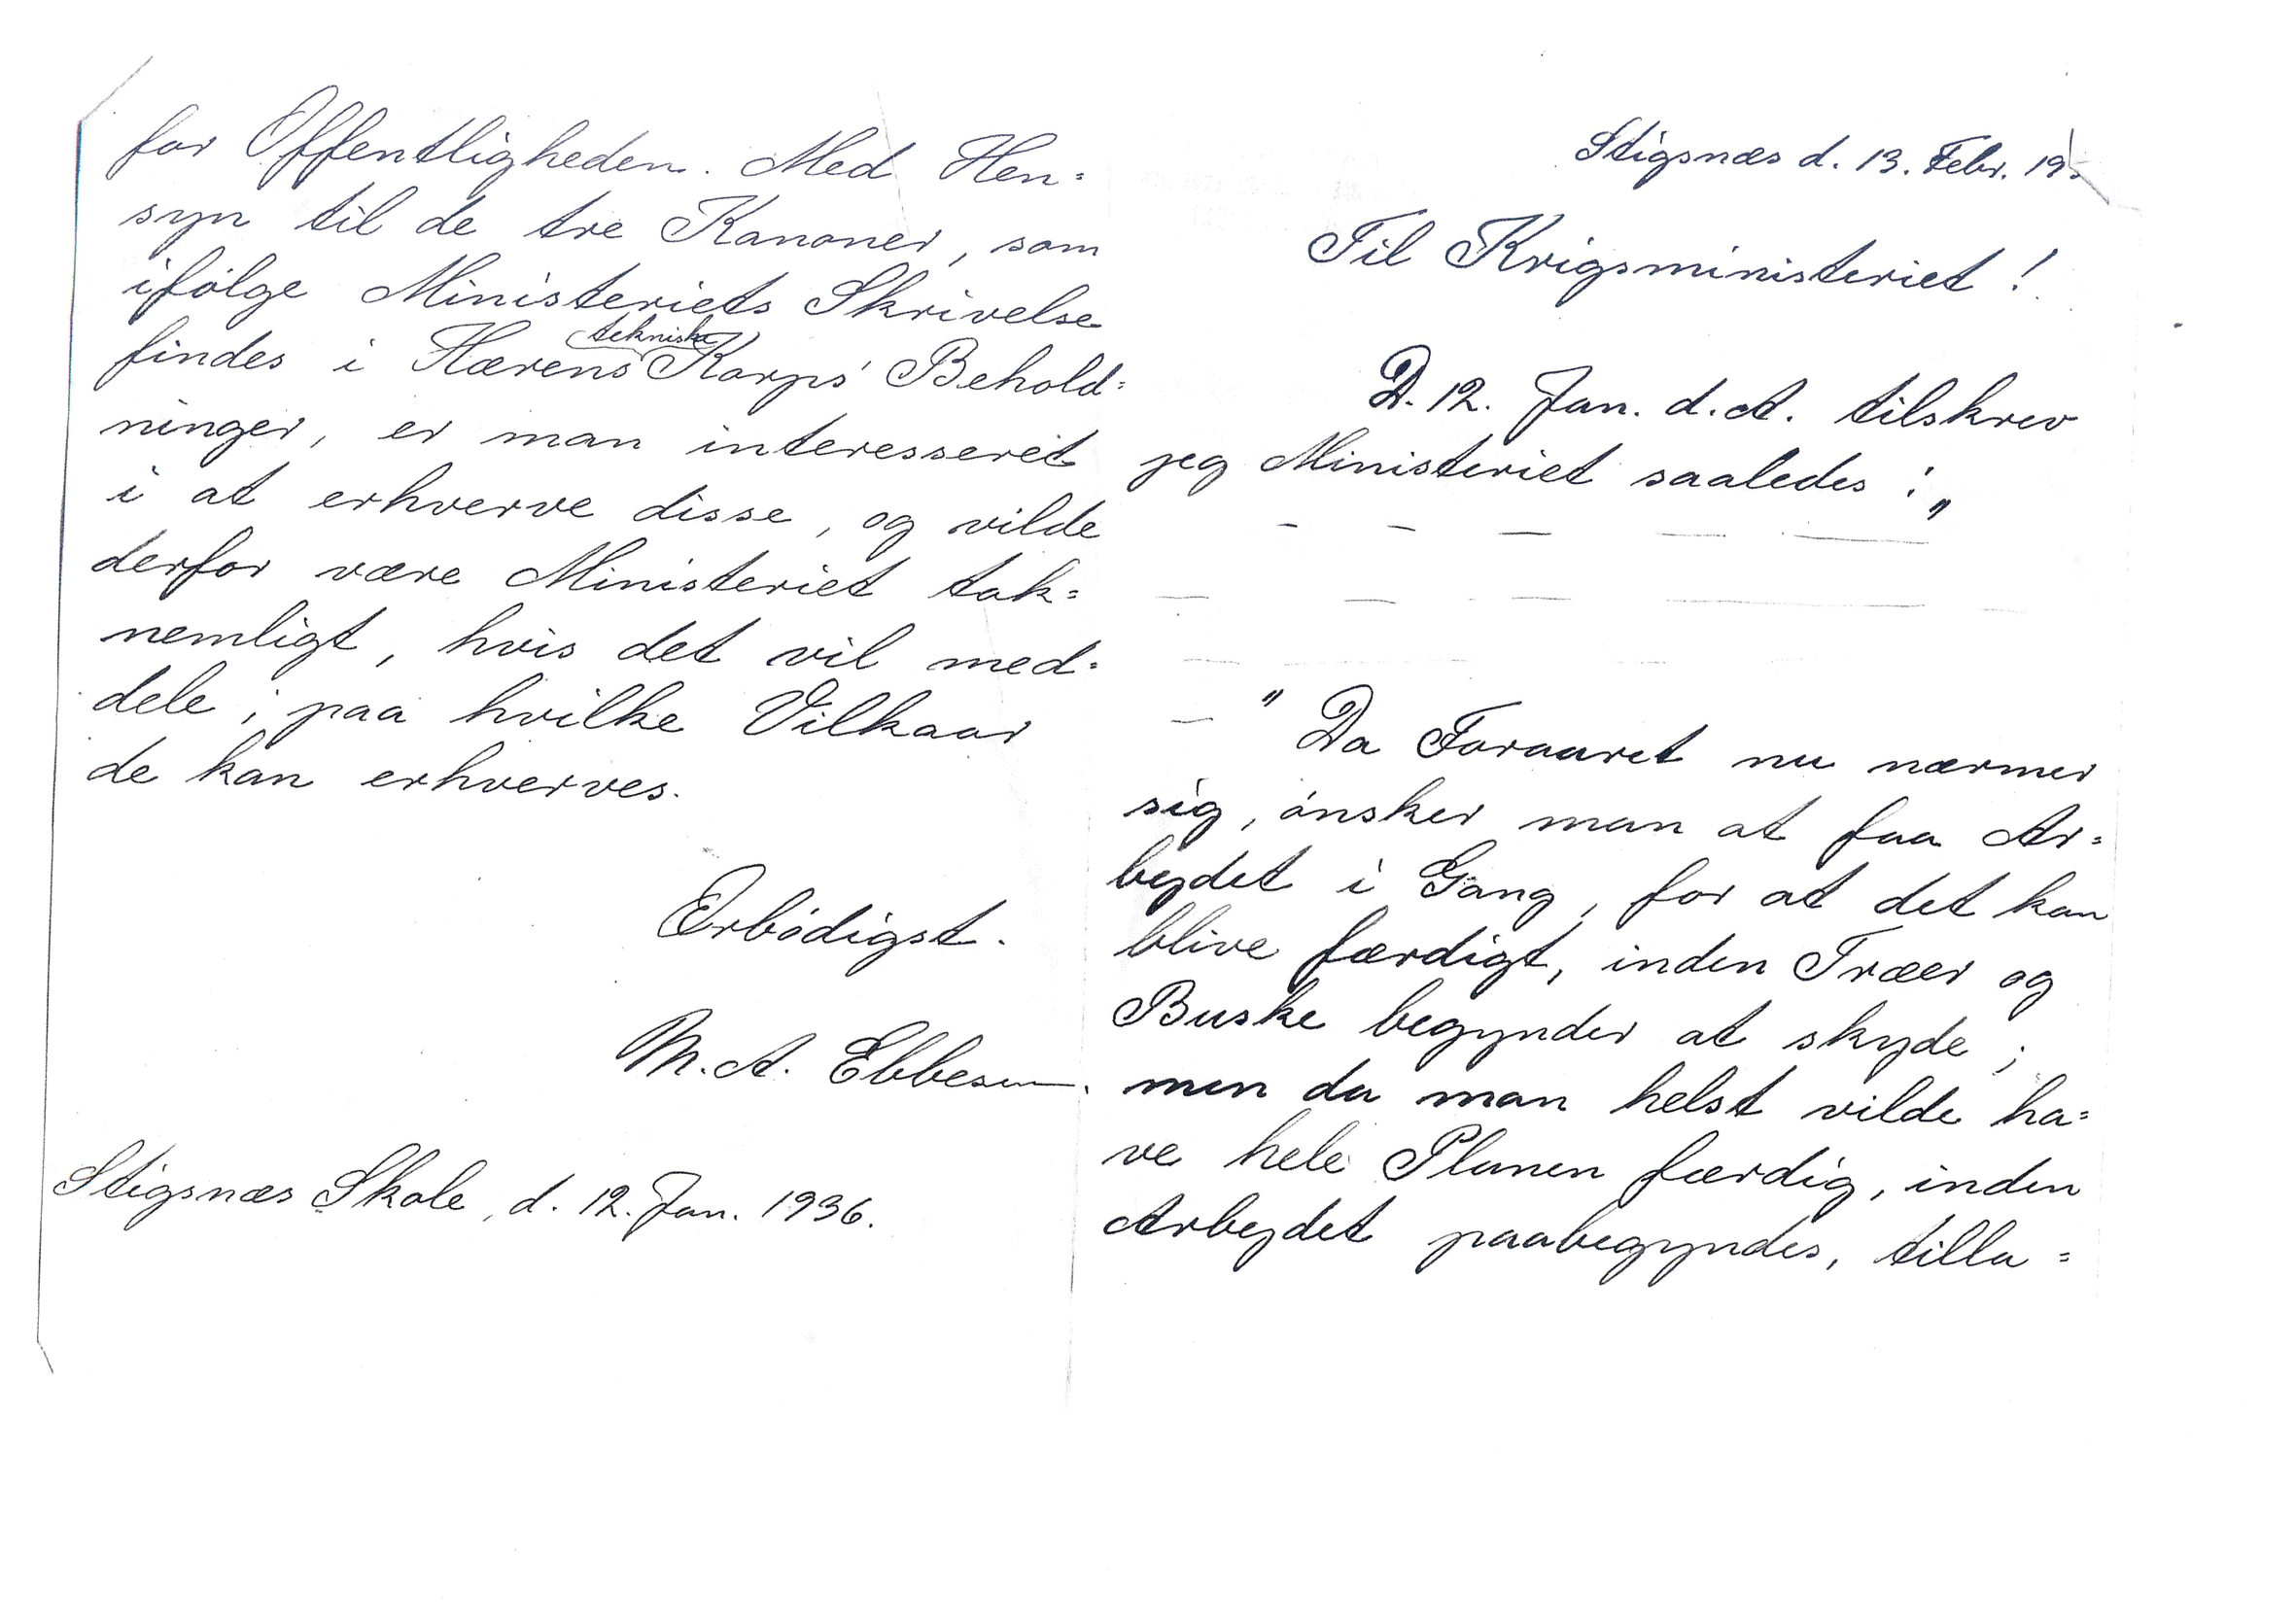 for Offentligheden. Med Hen=
syn til de tre Kanoner, som
ifølge Ministeriets Skrivelse
findes i Hærens tekniske Korps' Behold=
ninger, er man interesseret
i at erhverve disse, og vilde
derfor være Ministeriet tak=
nemligt, hvis det vil med=
dele, paa hvilke Vilkaar
de kan erhverves.
Erbødigst.
M. A. Ebbesen.
Stigsnæs Skole, d. 12. Jan. 1936.
Stigsnæs d. 13. Febr. 19
Til Krigsministeriet!
D. 12. Jan. d. A. tilskrev
jeg Ministeriet saaledes: „
— — — — —
— — — — —
— — — —
— " Da Foraaret nu nærmer
sig, ønsker man at faa Ar=
bejdet i Gang, for at det kan
blive færdigt, inden Træer og
Buske begynder at skyde;
men da man helst vilde ha=
ve hele Planen færdig, inden
Arbejdet paabegyndes, tilla=